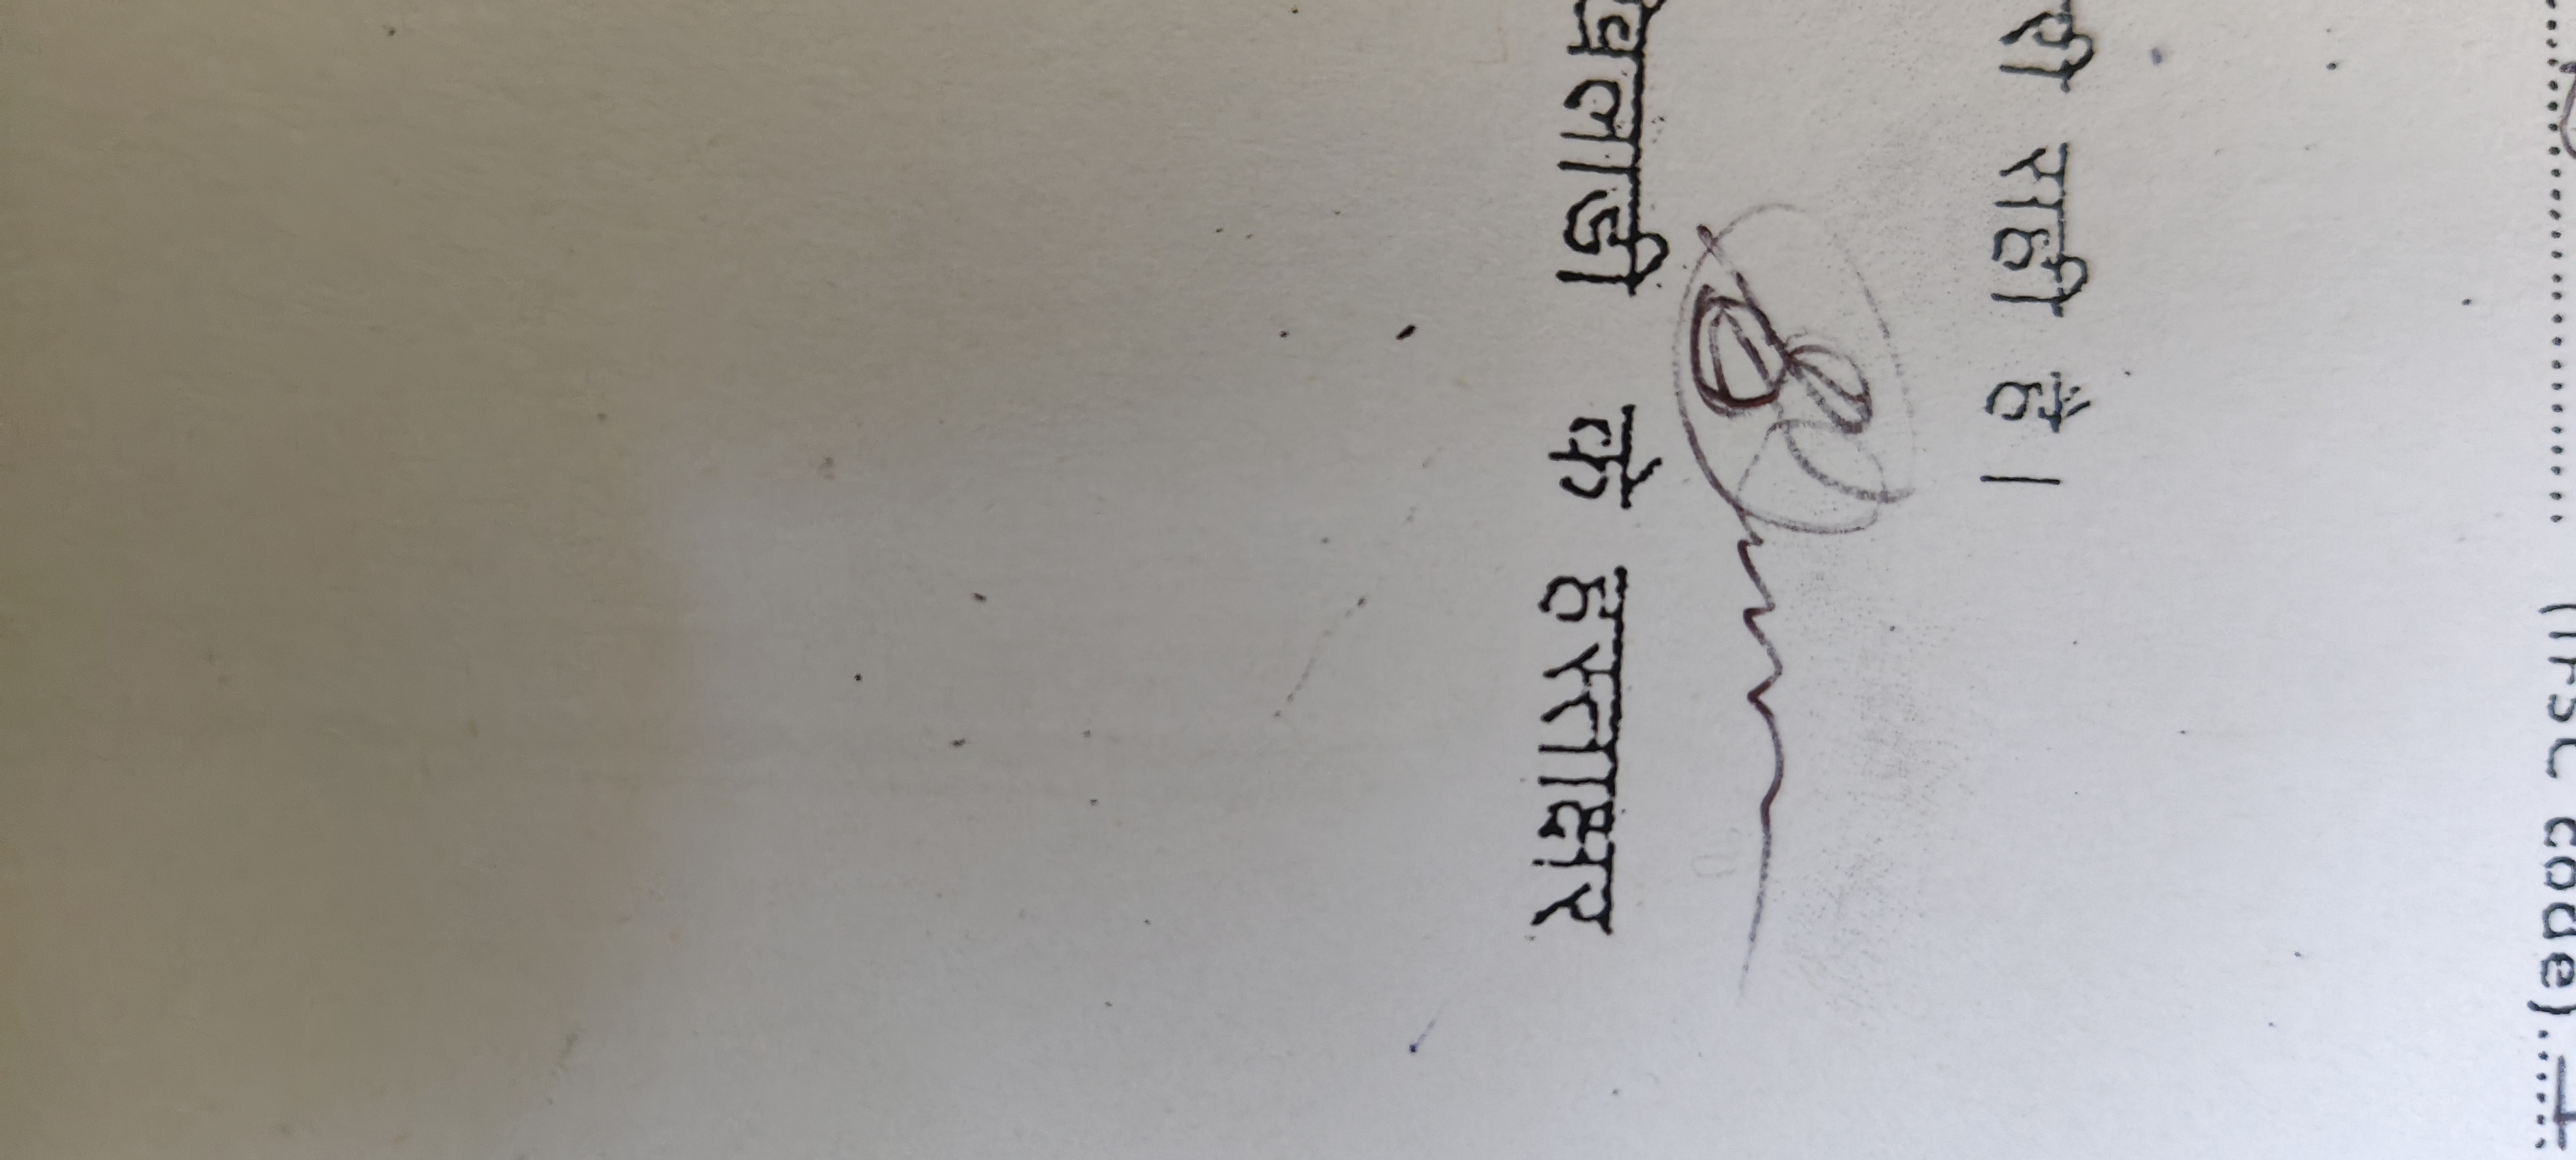 (IFSC code)
सही है।
खिलाडी के हस्ताक्षर